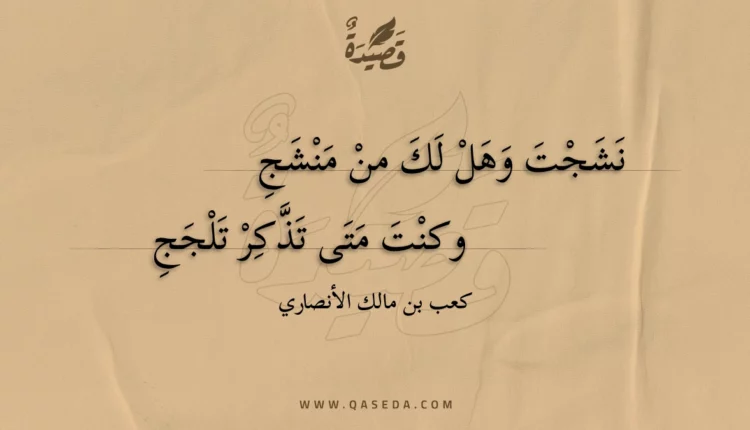 قَصِيْدَةٌ
نَشَجْتَ وَهَلْ لَكَ منْ مَنْشَجِ
وكنْتَ مَتَى تَذَّكِرْ تَلْجَجِ
كعب بن مالك الأنصاري
WWW.QASEDA.COM